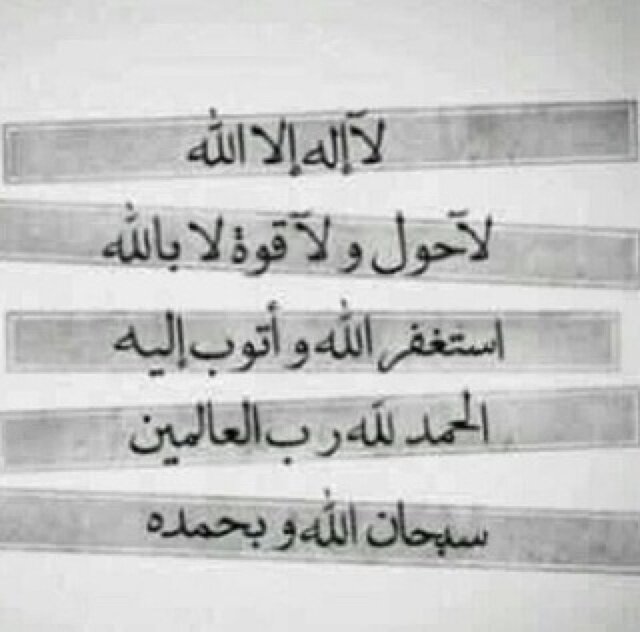 لآإله إلا الله
لآحول ولآ قوة لا بالله
استغفر الله و أتوب إليه
الحمد لله رب العالمين
سبحان الله و بحمده